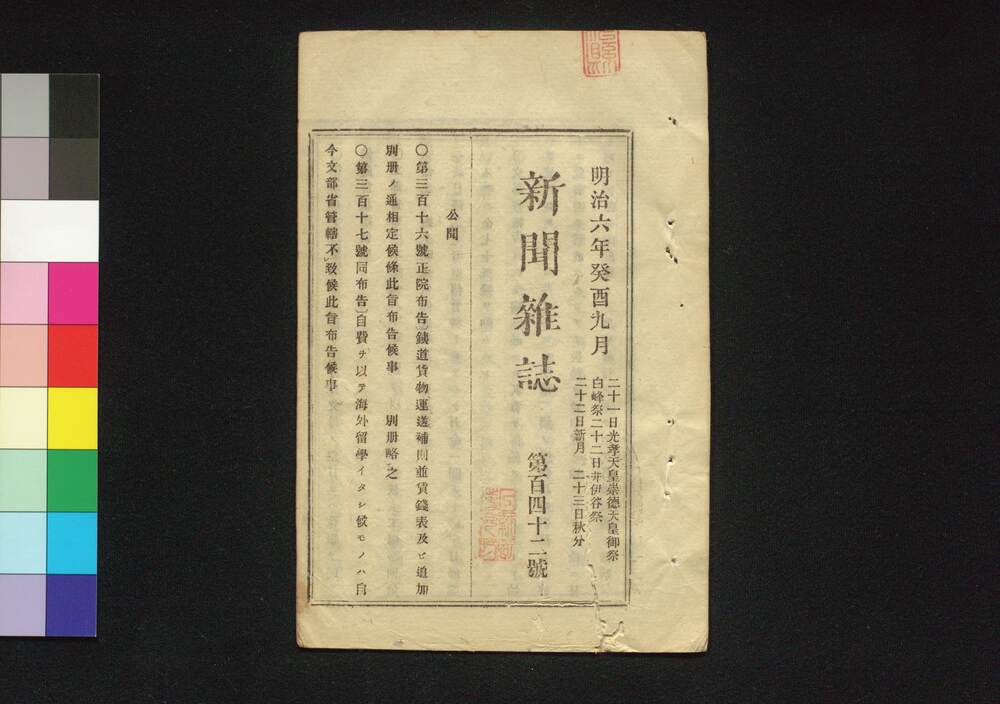 明治六年癸酉九月
二十一日光孝天皇崇德天皇御祭
白峰祭二十二日井伊谷祭
二十二日新月 二十三日秋分
新聞雜誌 第百四十二號
公聞
〇第三百十六號正院布告〕鐵道貨物運送補則並賃錢表及ヒ追加
別册ノ通相定候條此旨布告候事 別册略之
〇第三百十七號同布告〕自費ヲ以テ海外留學イタシ候モノハ自
今文部省管轄不致候此旨布告候事